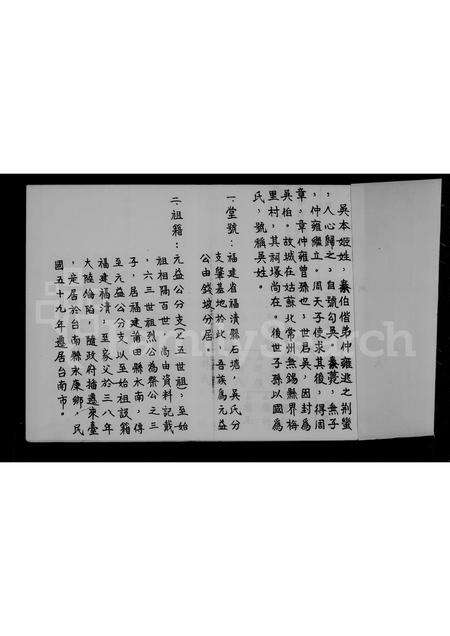 吳本姬姓，泰伯偕弟仲雍逃之荆蠻
，人心歸之，自號句吳。泰薨，無子
，仲雍繼立。周天子使求其後，得周
章，章仲雍曾孫也，世居吳，因封為
吳伯。故城在姑蘇北常州無錫縣界梅
里村，其祠塚尚在。後世子孫以國為
氏，號稱吳姓。
一堂號：福建省福清縣石塘，吳氏分
支肇基地於此，吾族為元益
公由錢坡分居。
二祖籍：元益公分支（五世祖，至始
祖相隔百世，尚由資料記載
，六三世祖烈公為祭公之三
子，居福建莆田縣水南，傳
至元益公分支以至始祖設籍
福建福清，至家父於三八年
大陸淪陷，隨政府播遷來臺
，定居於台南縣永康鄉，民
國五十九年遷居台南市。
FamilySearch